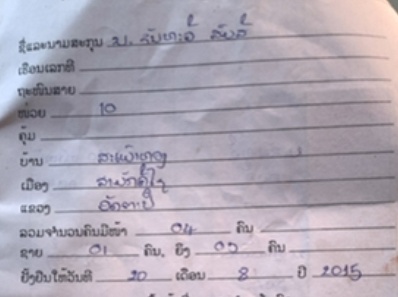 ຊື່ແລະນາມສະກຸນ ນ.
ເຮືອນເລກທີ
ຖະໜົນສາຍ
ໜ່ວຍ 10
ຄຸ້ມ
ບ້ານ
ເມືອງ ສາມັກຄີໄຊ
ແຂວງ ອັດຕະປື
ລວມຈຳນວນຄົນມີໜ້າ 04 ຄົນ
ຊາຍ 01 ຄົນ, ຍິງ 03 ຄົນ
ຢັ້ງຢືນໃຫ້ວັນທີ 20 ເດືອນ 8 ປີ 2015